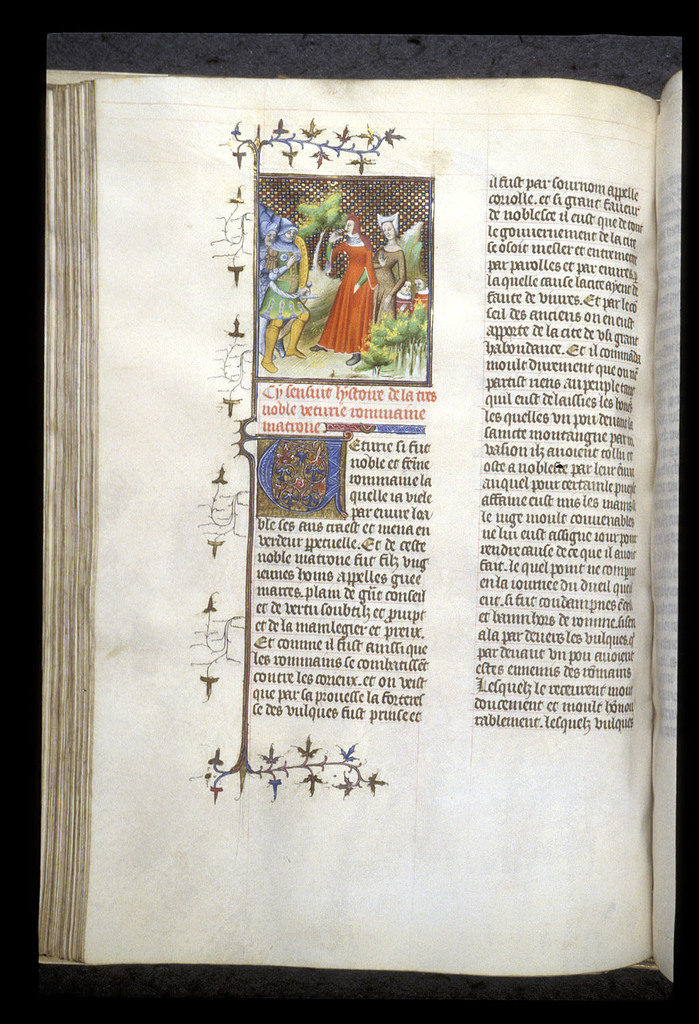 Cy sensuit lystoire de la tres
noble veturie rommaine
matrone
Veturie si fut
noble et feme
rommaine la
quelle ia viele
par euure lou
ble ses ans traist et mena en
verdeur perpetuelle. Et de ceste
noble matrone fut filz vng
ieunes homs appelles
marces. plain de gnt conseil
et de vertu soubtilz et prompt
et de la main legier et preux.
Et comme il fust ainsi que
les rommains se combatissent
contre les et on veist
que par sa prouesse la forteres
se des vulques fust prinse et
il fust par sournom appelle
coriolle. et si grant faueur
de noblesce il eust que de tout
le gouuernement de la cite
se osoit mesler et entremetre
par parolles et par euures.
la quelle cause la cite ayent de
faute de viures. Et par le con
seil des anciens on en eust
apporte de la cite de grant
habondance. Et il commanda
moult durement que on nen
partist riens au peuple tant
quil eust delaissies les
les quelles vn pou deuant la
saincte montaigne par
uasion ilz auoient tollu et
oste a noblesce par leur
auquel pour certain le pueple
affame eust mis les mains
le iuge moult conuenables
ne lui eust assigne iour pour
rendre cause de ce que il auoit
fait. le quel point ne compru
en la iournee du dueil quel
eut. si fut condampnes
et banni hors de romme. si sen
ala par deuers les vulques. q
par deuant vn pou auoient
estes ennemis des romains
Lesquelz le receurent moult
doucement et moult honou
rablement. lesquelz vulques